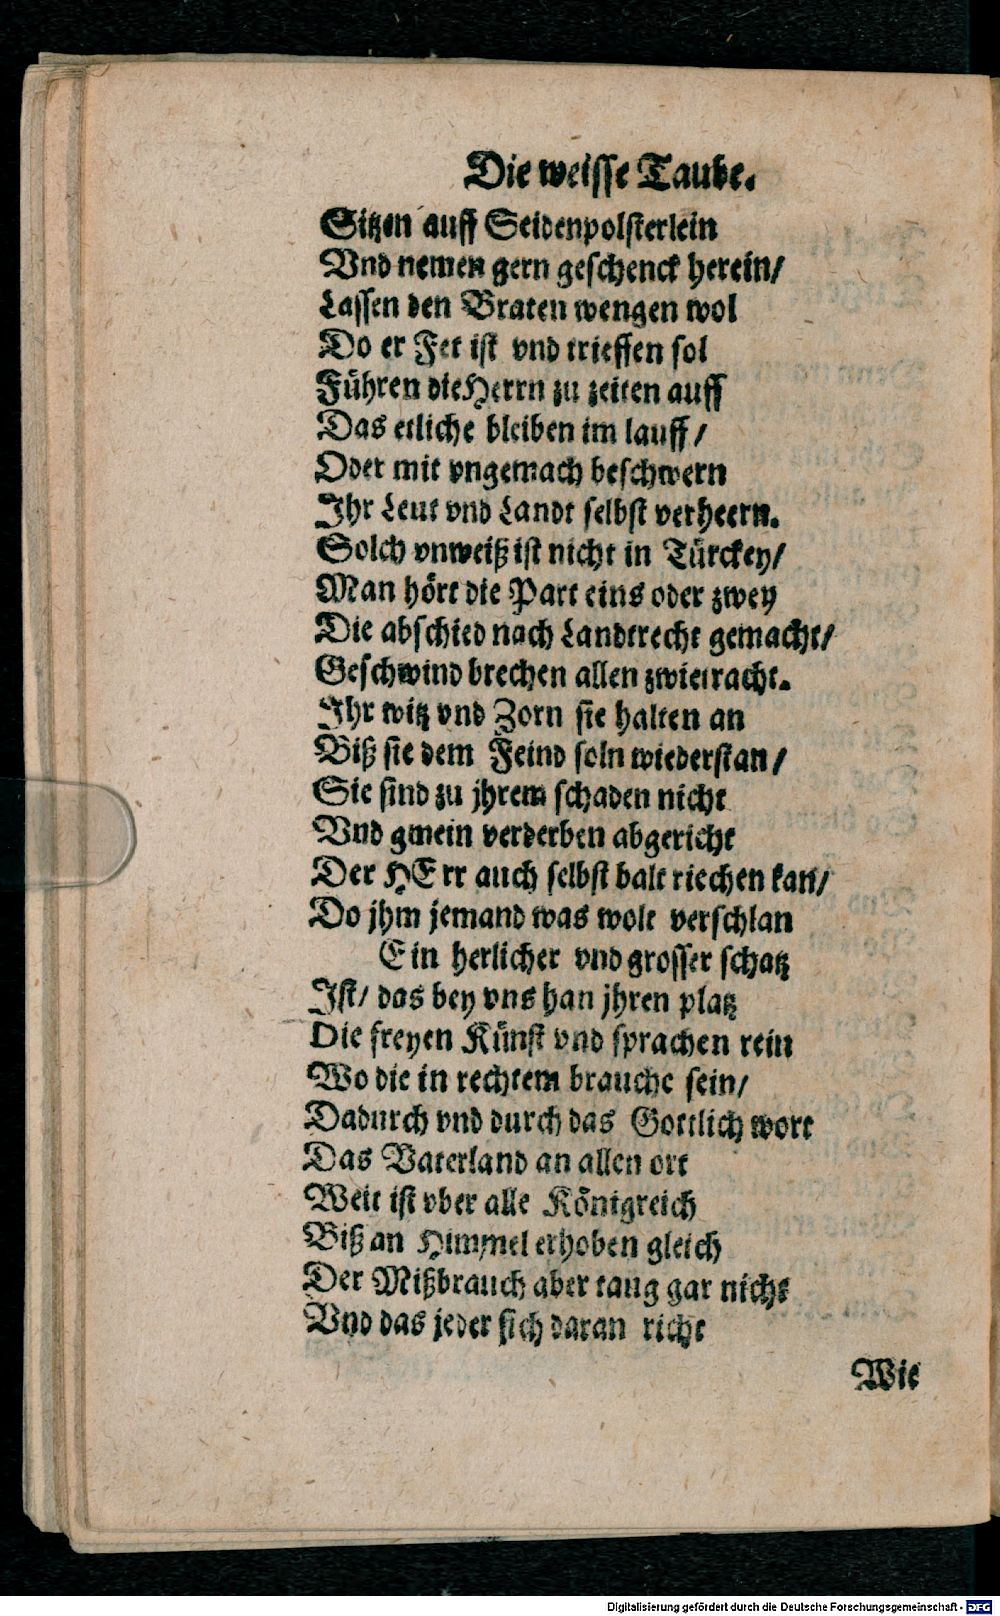 Die weisse Taube.
Sitzen auff Seidenpolsterlein
Vnd nemen gern geschenck herein/
Lassen den Braten wengen wol
Do er Fet ist vnd trieffen sol
Führen die Herrn zu zeiten auff
Das etliche bleiben im lauff/
Oder mit vngemach beschwern
Ihr Leut vnd Landt selbst verheern.
Solch vnweiß ist nicht in Türckey/
Man hört die Part eins oder zwey
Die abschied nach Landtrecht gemacht/
Geschwind brechen allen zwietracht.
Ihr witz vnd Zorn sie halten an
Biß sie dem Feind soln wiederstan/
Sie sind zu jhrem schaden nicht
Vnd gmein verderben abgericht
Der HErr auch selbst balt riechen kan/
Do jhm jemand was wolt verschlan
Ein herlicher vnd grosser schatz
Ist/ das bey vns han jhren platz
Die freyen Künst vnd sprachen rein
Wo die in rechtem brauche sein/
Dadurch vnd durch das Gottlich wort
Das Vaterland an allen ort
Weit ist vber alle Königreich
Biß an Himmel erhoben gleich
Der Mißbrauch aber taug gar nicht
Vnd das jeder sich daran richt
Wie
Digitalisierung gefördert durch die Deutsche Forschungsgemeinschaft - DFG